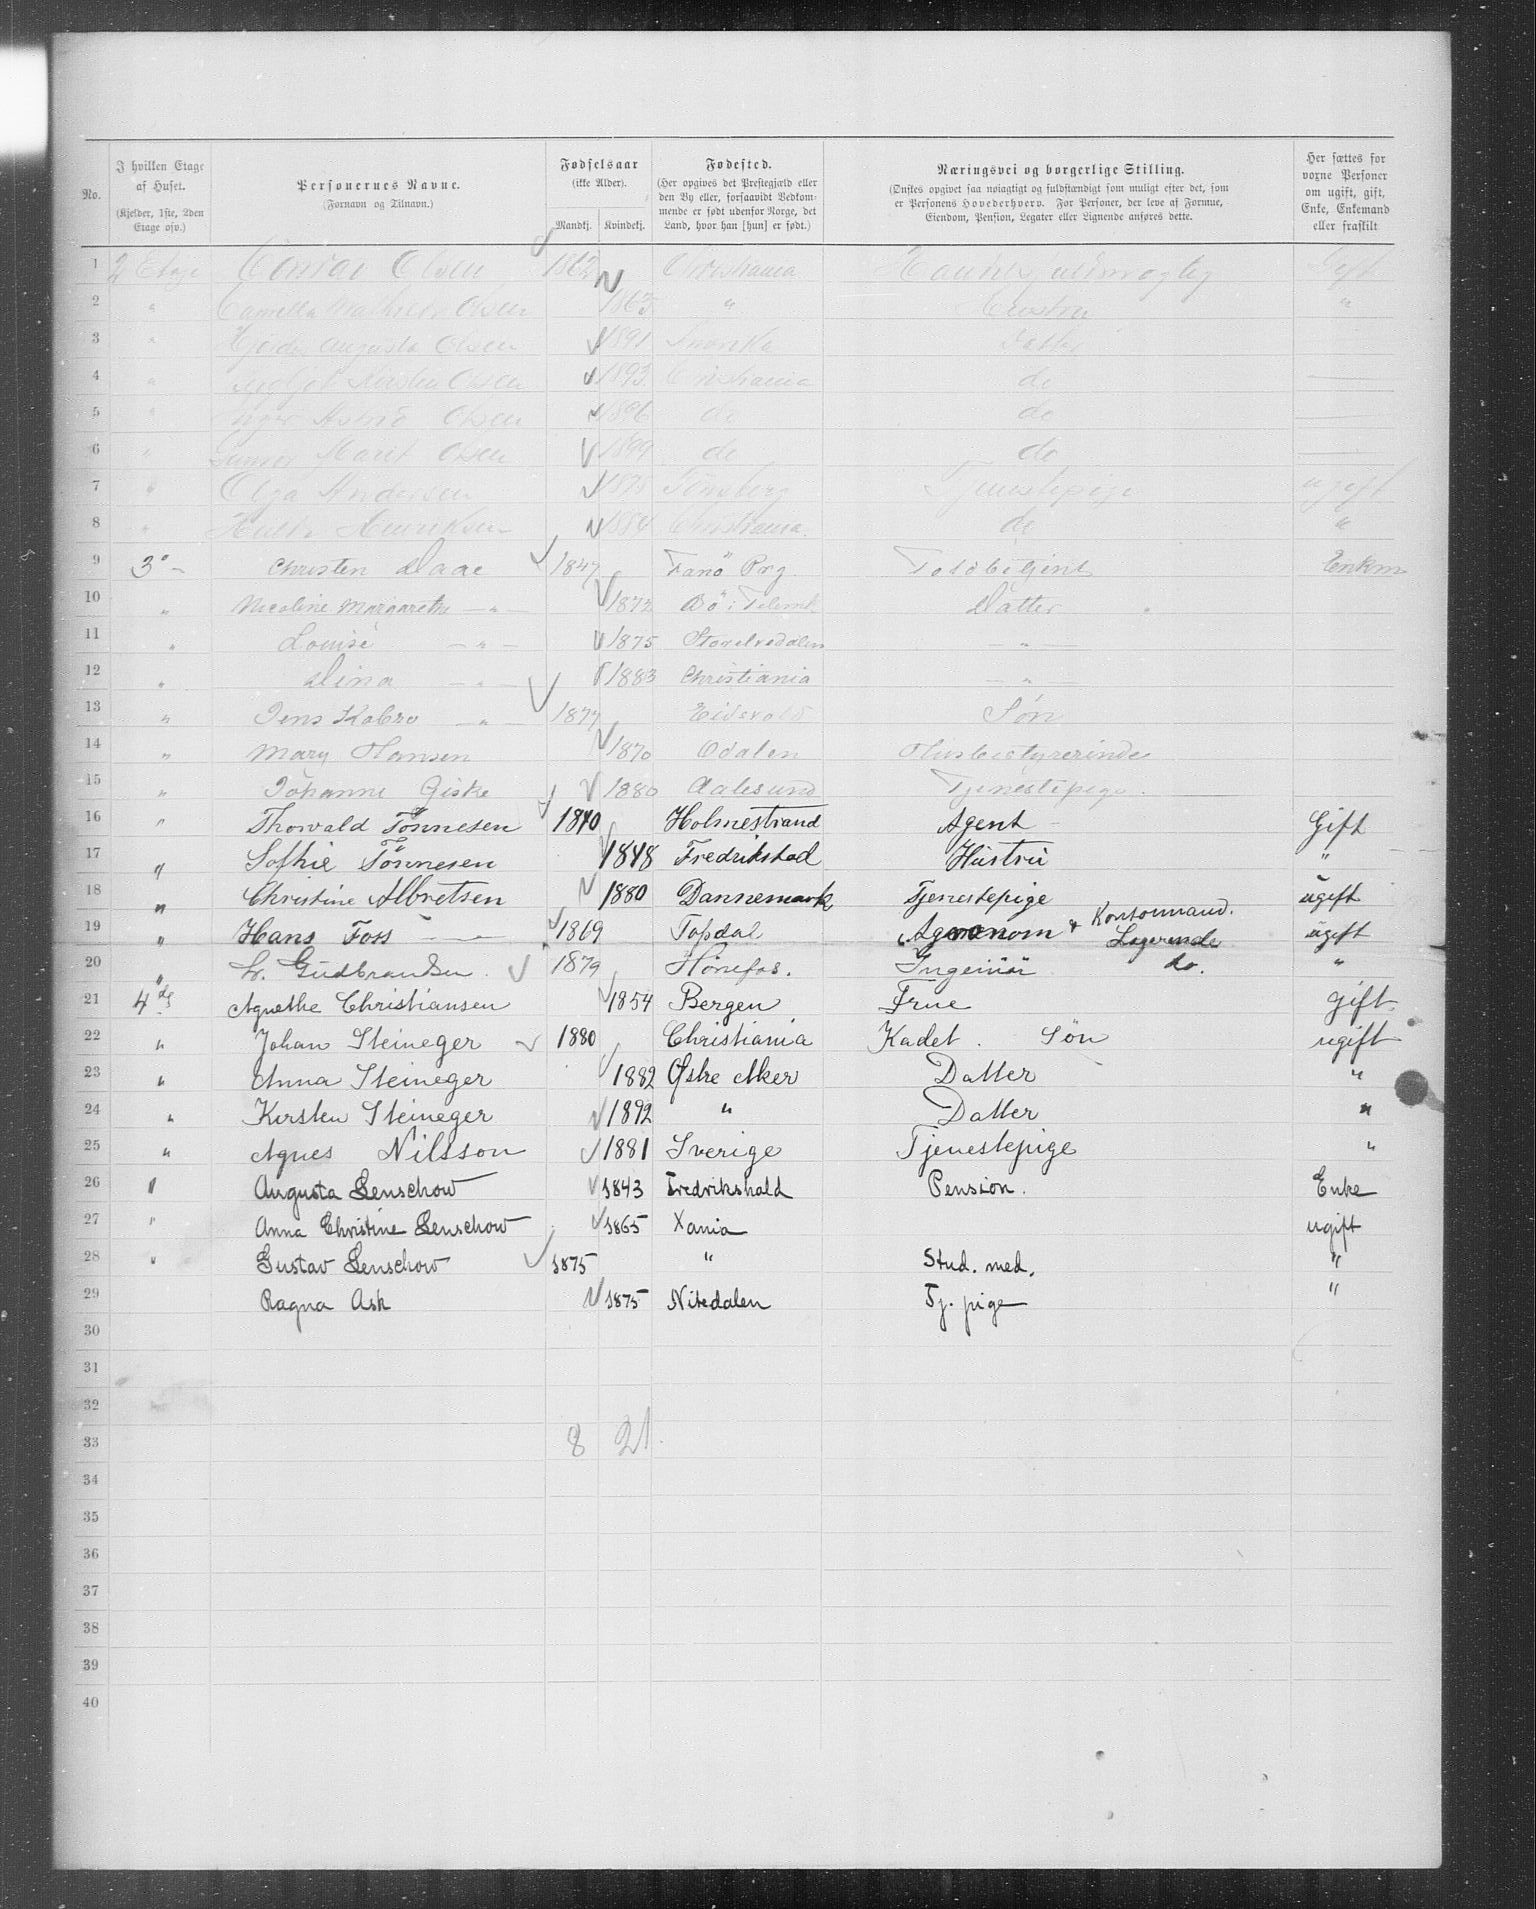 No. | I hvilken Etage af Huset. (Kjelder, 1ste, 2den Etage osv.) | Personernes Navne. (Fornavn og Tilnavn.) | Fødselsaar (ikke Alder). Mandkj. Kvindekj. | Fødested. (Her opgives det Prestegjæld eller den By eller, forsaavidt Vedkommende er født udenfor Norge, det Land, hvor han [hun] er født.) | Næringsvei og borgerlige Stilling. (Ønskes opgivet saa nøiagtigt og fuldstændigt som muligt efter det, som er Personens Hovederhverv. For Personer, der leve af Formue, Eiendom, Pension, Legater eller Lignende anføres dette. | Her sættes for voxne Personer om ugift, gift, Enke, Enkemand eller fraskilt
1 2 Etage Conrad Olsen 1862 Christiania Gift
2 " Camilla Olsen 1865 " Hustru "
3 " Augusta Olsen 1891 Datter
4 " Kirsten Olsen 1893 Christiania do
5 " Inger Astrid Olsen 1896 do do
6 " Marit Olsen 1899 do do
7 " Olga Andersen 1875 Tønsberg Tjenestepige ugift
8 " Henriksen 1884 Christiania do "
9 3° – Christen Daae 1847 Fanö Prg. Toldbetjent Enkm
10 " Nicoline Margarethe – " – 1872 Bö i Telemk Datter
11 " Louise – " – 1875 Storelvedalen – " –
12 " Dina – " – 1883 Christiania – " –
13 " Jens Kobro – " – 1877 Eidsvold Sön
14 " Mary Hansen 1870 Odalen Husbestyrerinde
15 " Johanne Giske 1880 Aalesund Tjenestepige
16 " Thorvald Tönnesen 1840 Holmestrand Agent Gift
17 " Sofhie Tönnesen 1848 Fredrikstad Hustru "
18 " Christine Albretsen 1880 Dannemark Tjenestepige ugift
19 " Hans Foss 1869 Topdal Agronom + Kontormand. Logerende ugift
20 " L. Gudbrandsen 1879 Hönefos. Ingeniör do. "
21 4de Agnethe Christiansen 1854 Bergen Frue gift
22 " Johan Steineger 1880 Christiania Kadet. Sön ugift
23 " Anna Steineger 1882 Østre Aker Datter "
24 " Kirsten Steineger 1892 " Datter "
25 " Agnes Nilsson 1881 Sverige Tjenestepige "
26 " Augusta Lenschow 1843 Fredrikshald Pension. Enke
27 " Anna Christine Lenschow 1865 Xania ugift
28 " Gustav Lenschow 1875 " Stud. med. "
29 Ragna Ask 1875 Nitedalen Tj. pige "
30
31
32
33 8 21
34
35
36
37
38
39
40